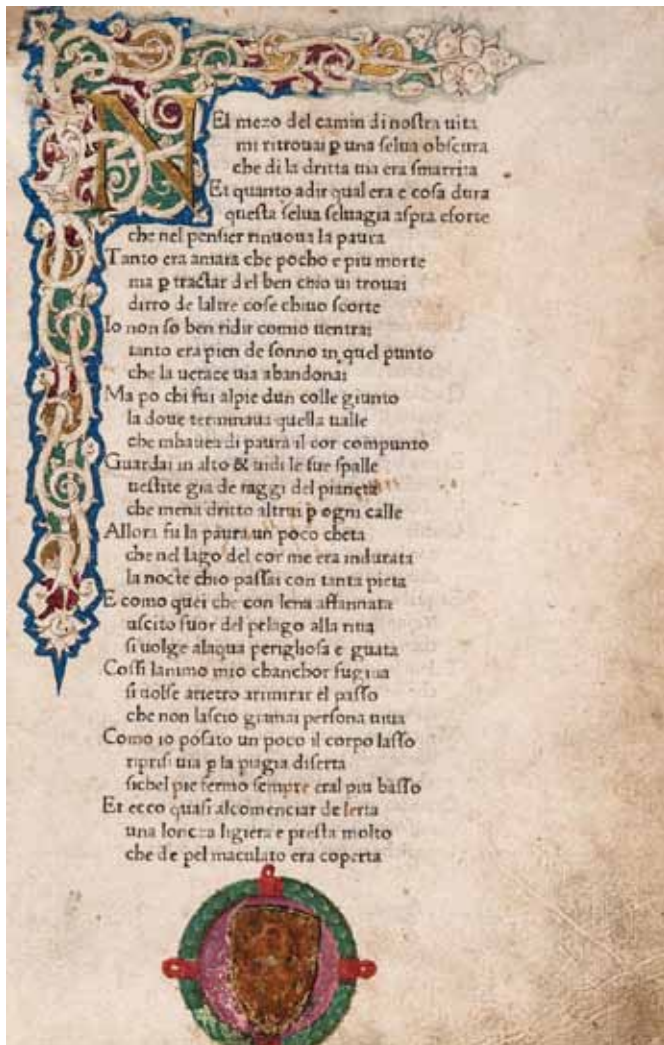 NEl mezo del camin di noſtra uita
mi ritrouai ꝑ una ſelua obſcura
che di la dritta uia era ſmarrita
Et quanto adir qual era e coſa dura
queſta ſelua ſeluagia aſpra eforte
che nel penſier rinuoua la paura
Tanto era amara che pocho e piu morte
ma ꝑ tractar del ben chio ui trouai
dirro de laltre coſe chiuo ſcorte
Io non ſo ben ridir comio uentrai
tanto era pien de ſonno in quel punto
che la uerace uia abandonai
Ma po chi fui alpie dun colle giunto
la doue terminaua quella ualle
che mhauea di paura il cor compunto
Guardai in alto & uidi le ſue ſpalle
ueſtite gia de raggi del pianeta
che mena dritto altrui ꝑ ogni calle
Allora fu la paura un poco cheta
che nel lago del cor me era indurata
la nocte chio paſſai con tanta pieta
E como quei che con lena affannata
uſcito fuor del pelago alla riua
ſi uolge alaqua perighoſa e guata
Coſſi lanimo mio chanchor fugiua
ſi uolſe arietro arimirar el paſſo
che non laſcio giamai perſona uiua
Como io poſato un poco il corpo laſſo
ripriſi uia ꝑ la piagia diſerta
ſichel pie fermo ſempre eral piu baſſo
Et ecco quaſi alcomenciar de lerta
una loncza ligiera e preſta molto
che de pel maculato era coperta